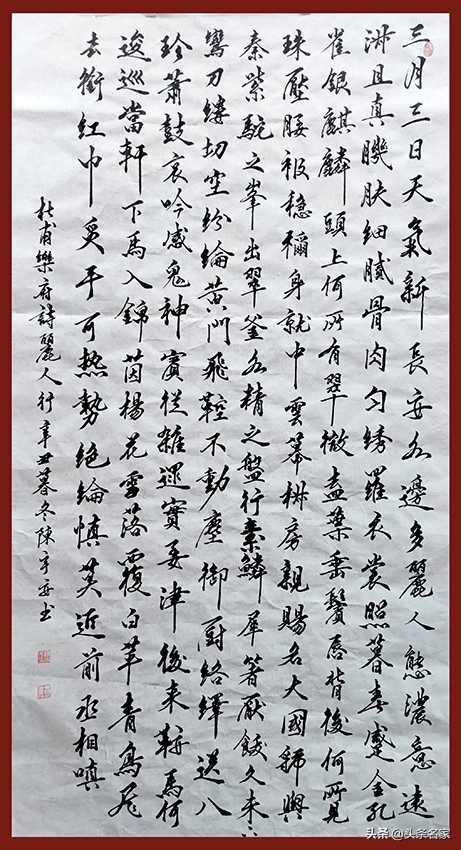 三月三日天氣新長安水邊多麗人態濃意遠
淑且真肌肤細膩骨肉匀綉羅衣裳照暮春蹙金孔
雀銀麒麟頭上何所有翠微盍葉垂鬢唇背後何所見
珠壓腰衱穩稱身就中雲幕椒房親賜名大國虢與
秦紫駝之峯出翠釜水精之盤行素鱗犀箸厭飫久未下
鸞刀縷切空紛綸黃門飛鞚不動塵御厨絡繹送八
珍蕭鼓哀吟感鬼神賓從雜遝實要津後來鞍馬何
逡巡當軒下馬入錦茵楊花雪落覆白苹青鳥飛
去銜紅巾炙手可熱勢絕倫慎莫近前丞相嗔
杜甫樂府詩麗人行辛丑暮冬陳書
头条 @头条名家